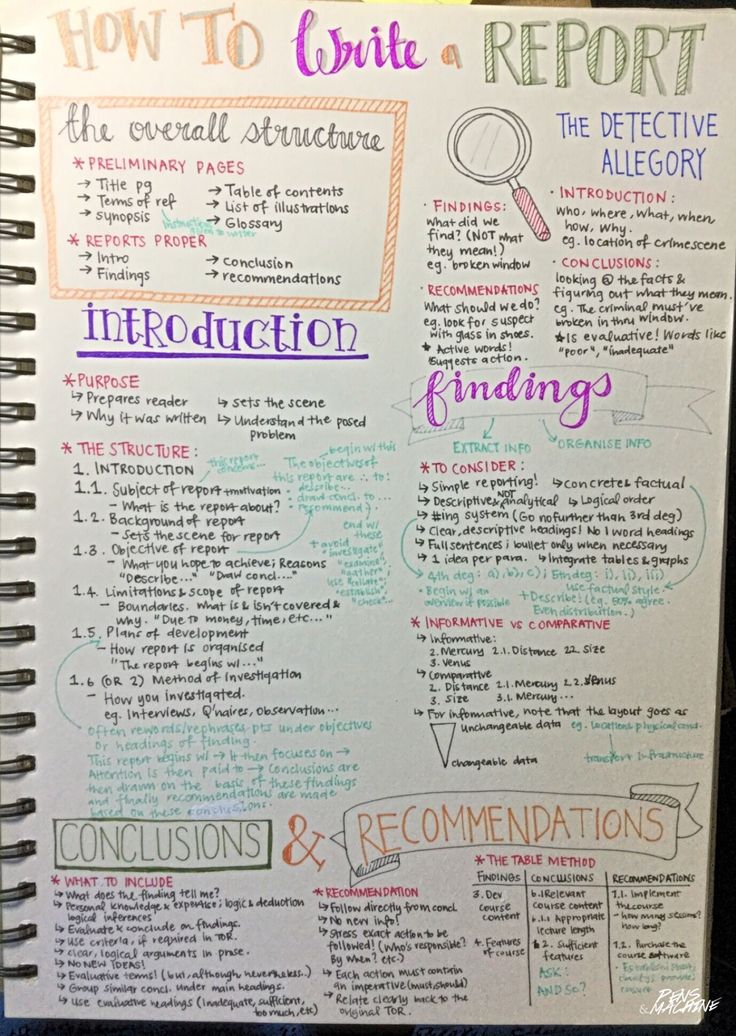 HOW TO Write a REPORT
the overall structure
* PRELIMINARY PAGES
→ Title pg
→ Terms of ref
→ synopsis
→ Table of contents
→ List of illustrations
→ Glossary
instructions given to writer
* REPORTS PROPER
→ Intro
→ Findings
→ conclusion
→ recommendations
THE DETECTIVE
ALLEGORY
· FINDINGS:
what did we
find? (NOT what
they mean!)
eg. broken window
· RECOMMENDATIONS
What should we do?
eg. look for suspect
with glass in shoes.
★ Active words!
Suggests action.
· INTRODUCTION:
who, where, what, when,
how, why.
eg. location of crimescene
· CONCLUSIONS:
looking @ the facts &
figuring out what they mean.
eg. The criminal must've
broken in thru window.
★ Is evaluative! Words like
"poor", "inadequate"
introduction
* PURPOSE
↳ Prepares reader
↳ Why it was written
↳ Sets the scene
↳ Understand the posed
problem
* THE STRUCTURE:
1. INTRODUCTION
this report
concerns...
1.1. Subject of report + motivation
- What is the report about?
1.2. Background of report
- Sets the scene for report
1.3. Objective of report
- What you hope to achieve; Reasons
"Describe..." "Draw concl...."
1.4. Limitations & scope of report
- Boundaries. What is & isn't covered &
why. "Due to money, time, etc..."
1.5. Plans of development
- How report is organised
"The report begins w/..."
1.6 (OR 2) Method of Investigation
- How you investigated.
eg. Interviews, Q'naires, observation...
begin w/ this
The objectives of
this report are ∴ to:
- describe...
- draw concl. to...
- recommend
end w/
these
+ avoid
"investigate",
"examine",
"gather",
use "collate",
"establish",
"check"...
often rewords/rephrases pts under objectives
or headings of finding.
This report begins w/ → It then focuses on →
Attention is then paid to → Conclusions are
then drawn on the basis of these findings
and finally recommendations are made
based on these conclusions.
findings
EXTRACT INFO
ORGANISE INFO
* TO CONSIDER:
↳ Simple reporting! ↳ concrete & factual
↳ Descriptive & NOT analytical ↳ Logical order
↳ #ing system (Go no further than 3rd deg)
↳ Clear, descriptive headings! No 1 word headings
↳ Full sentences; bullet only when necessary
↳ 1 idea per para. ↳ Integrate tables & graphs
↳ 4th deg: a), b), c); 5th deg: i), ii), iii)
· Begin w/ an
overview if possible
use factual style
+ Describe! (eg. 50% agree.
Even distribution.)
* INFORMATIVE VS COMPARATIVE
↳ Informative:
2. Mercury 2.1. Distance 2.2. Size
3. Venus
↳ Comparative
2. Distance 2.1. Mercury 2.2. Venus
3. Size 3.1. Mercury...
↳ For informative, note that the layout goes as
unchangeable data
eg. location, physical cons.
changeable data
transport infrastructure
CONCLUSIONS & RECOMMENDATIONS
* WHAT TO INCLUDE
↳ What does the finding tell me?
↳ Personal knowledge & expertise; logic & deduction
logical inferences
↳ Evaluate & conclude on findings.
↳ Use criteria, if required in TOR.
↳ clear, logical arguments in prose.
↳ NO NEW IDEAS!
↳ Evaluative terms! (but, although, nevertheless..)
↳ Group similar concl. under main headings.
↳ use evaluative headings (Inadequate, sufficient,
too much, etc)
* RECOMMENDATION
↳ Follow directly from concl.
↳ No new info!
↳ Stress exact action to be
followed! (Who's responsible?
By When? etc.)
↳ Each action must contain
an imperative (must, should)
↳ Relate clearly back to the
original TOR.
* THE TABLE METHOD
FINDINGS
3. Dev
course
content
4. Features
of course
CONCLUSIONS
6. Relevant
course content
6.1.1 Appropriate
lecture length
6.2. Sufficient
features
ASK:
AND SO?
RECOMMENDATIONS
7.1. Implement
the course
- how many sessions?
how long?
7.2. Purchase the
course software
PENS
& MACHINE